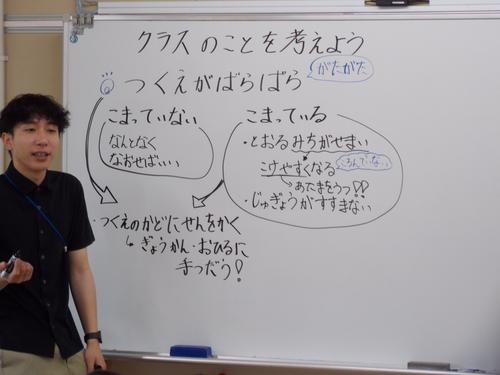 クラスのことを考えよう
つくえがばらばら
がたがた
こまっていない
なんとなく
なおせばいい
こまっている
・とおるみちがせまい
こけやすくなる
→あたまをうつ!!
・じゅぎょうがすすまない
・つくえのかどにせんをかく
↳ぎょうかん・おひるに
手つだう!